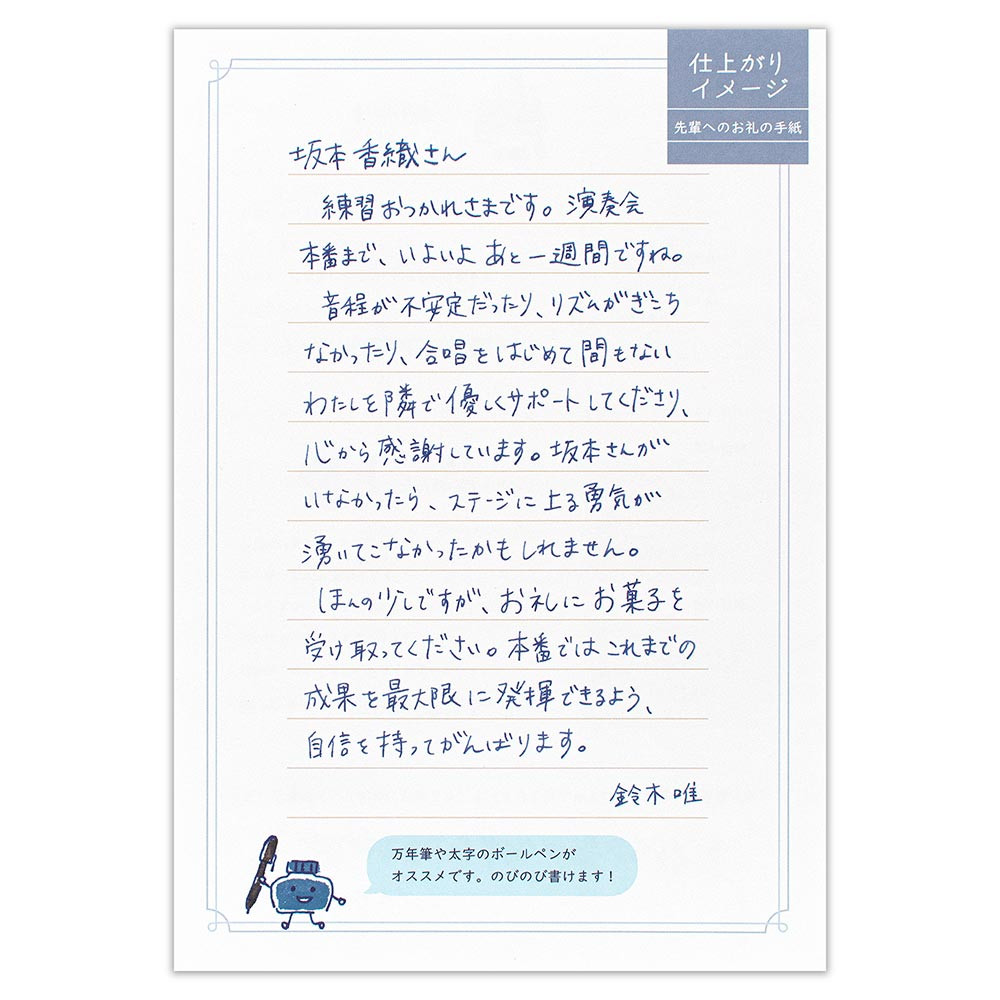 仕上がり
イメージ
先輩へのお礼の手紙
坂本香織さん
練習おつかれさまです。演奏会
本番まで、いよいよあと一週間ですね。
音程が不安定だったり、リズムがぎこち
なかったり、合唱をはじめて間もない
わたしを隣で優しくサポートしてくださり、
心から感謝しています。坂本さんが
いなかったら、ステージに上る勇気が
湧いてこなかったかもしれません。
ほんの少しですが、お礼にお菓子を
受け取ってください。本番ではこれまでの
成果を最大限に発揮できるよう、
自信を持ってがんばります。
鈴木唯
万年筆や太字のボールペンが
オススメです。のびのび書けます！